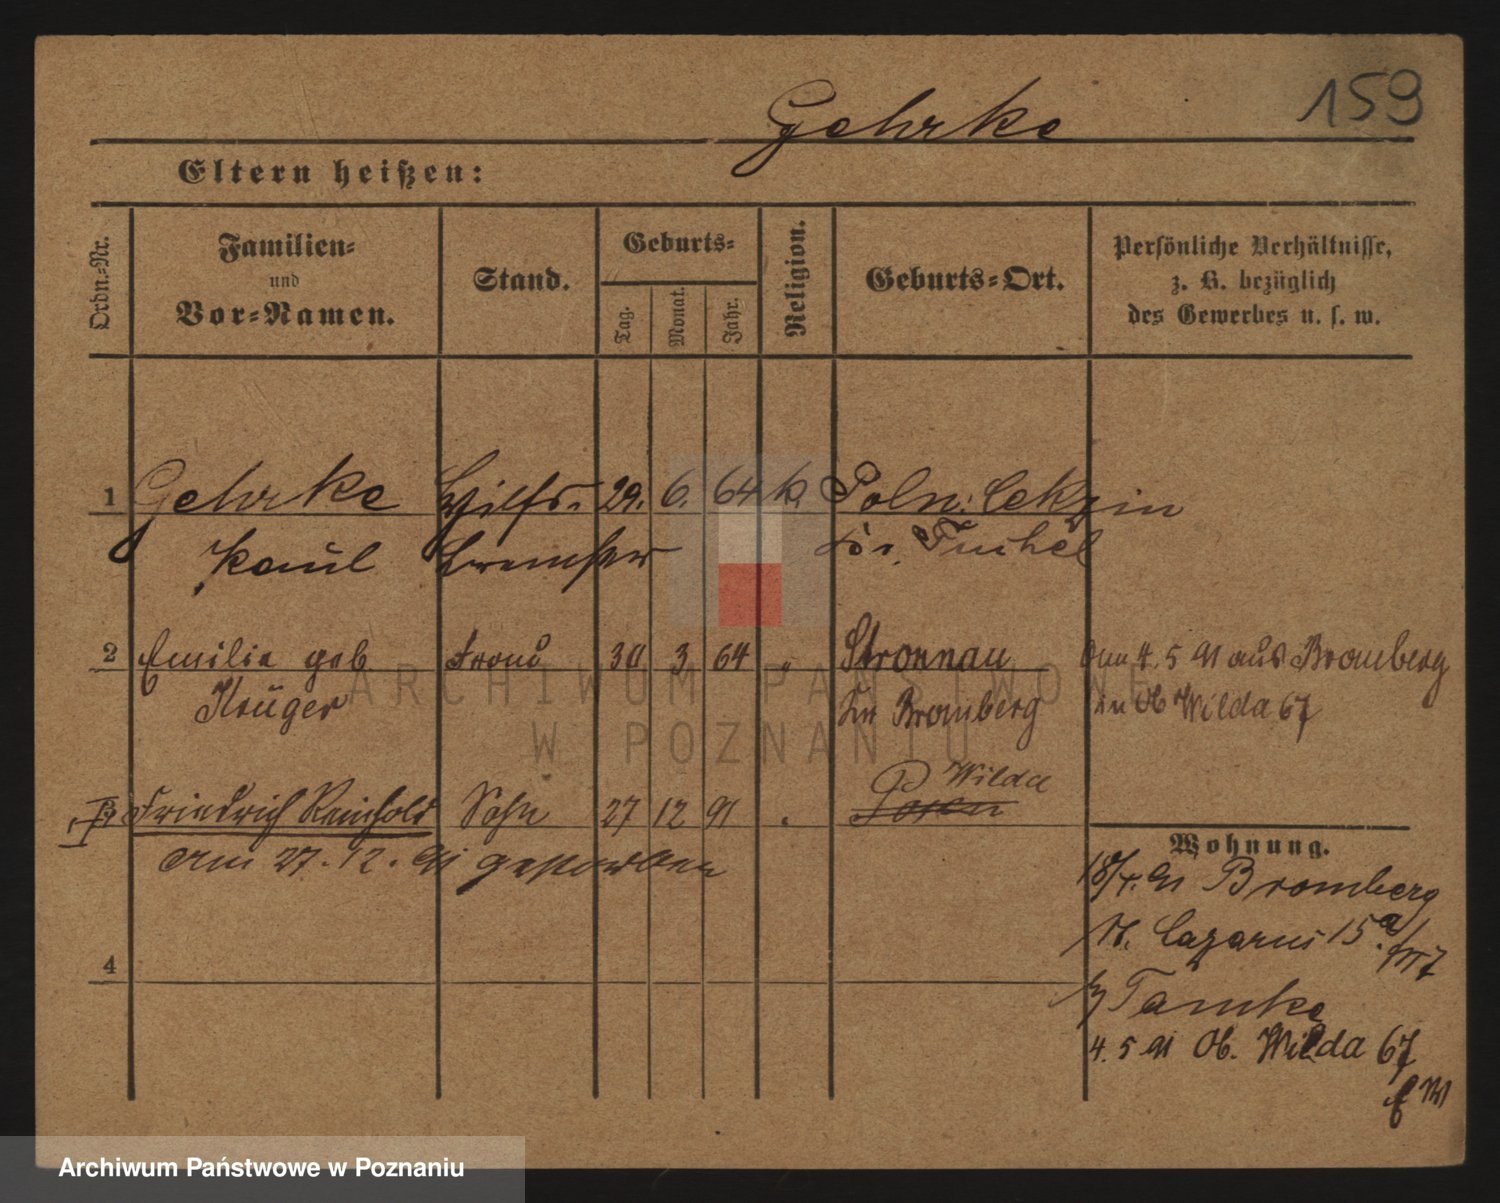 Gehrke 159
Eltern heißen:
Ordn.-Nr.
Familien-
und
Vor-Namen.
Stand.
Geburts-
Tag.
Monat.
Jahr.
Religion.
Geburts-Ort.
Persönliche Verhältnisse,
z. B. bezüglich
des Gewerbes u. s. w.
1 Gehrke Hilfs- 29. 6. 64 k. Poln. Cekzin
Paul Bremser Kr. Tuchel
2 Emilie geb Frau 30 3 64 " Stronnau
Krüger Kr Bromberg
am 4. 5 91 aus Bromberg
in Ob Wilda 67
Wilda
3 Friedrich Reinhold Sohn 27 12 91 Posen
am 27. 12. 91 gestorben
4
Wohnung.
18/4. 91 Bromberg
St. Lazarus 15a
b/ Tamke
4. 5 91 Ob. Wilda 67
ARCHIWUM PAŃSTWOWE
W POZNANIU
Archiwum Państwowe w Poznaniu